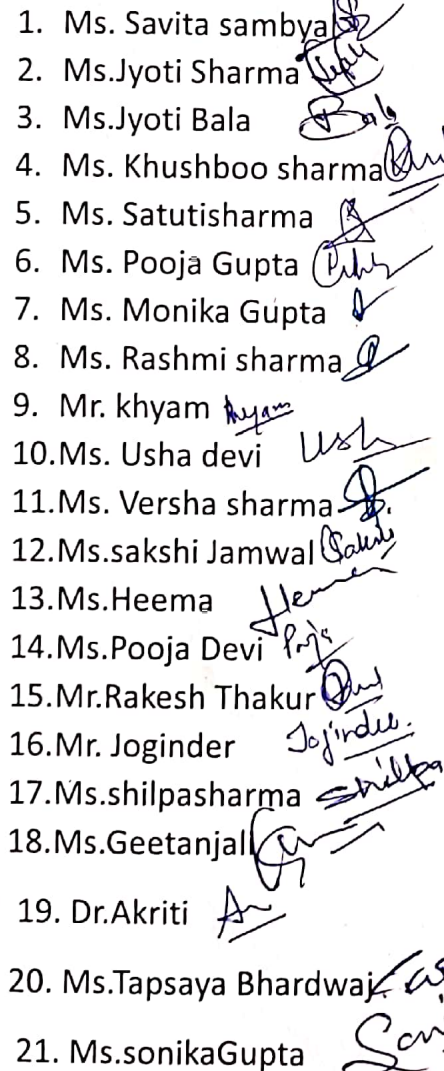 1. Ms. Savita sambyal
2. Ms.Jyoti Sharma
3. Ms.Jyoti Bala Bala
4. Ms. Khushboo sharma
5. Ms. Satutisharma
6. Ms. Pooja Gupta
7. Ms. Monika Gupta
8. Ms. Rashmi sharma
9. Mr. khyam
10.Ms. Usha devi Ush
11.Ms. Versha sharma
12.Ms.sakshi Jamwal Sakshi
13.Ms.Heema
14.Ms.Pooja Devi Pooja
15.Mr.Rakesh Thakur
16.Mr. Joginder Joginder.
17.Ms.shilpasharma Shilpa
18.Ms.Geetanjali
19. Dr.Akriti
20. Ms.Tapsaya Bhardwaj
21. Ms.sonikaGupta